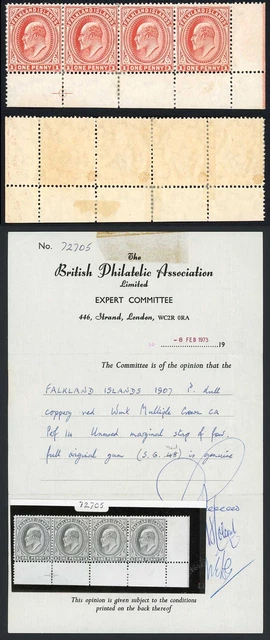 FALKLAND ISLANDS FALKLAND ISLANDS FALKLAND ISLANDS FALKLAND ISLANDS
ONE PENNY ONE PENNY ONE PENNY ONE PENNY
No. 72705
The
British Philatelic Association
Limited
EXPERT COMMITTEE
446, Strand, London, WC2R 0RA
-8 FEB 1975 19
The Committee is of the opinion that the
FALKLAND ISLANDS 1907 1d. dull
coppery red Wmk Multiple Crown CA
Perf 14 Unused marginal strip of four,
full original gum (S.G. ) is genuine
72705
FALKLAND ISLANDS FALKLAND ISLANDS FALKLAND ISLANDS FALKLAND ISLANDS
ONE PENNY ONE PENNY ONE PENNY ONE PENNY
This opinion is given subject to the conditions
printed on the back thereof